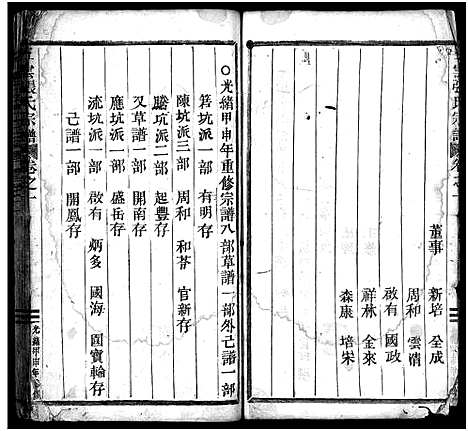 張氏宗譜
卷之一
董事
新培 全成
周和 雲清
啟有 國政
祥林 金來
森康 培宋
○光緒甲申年重修宗譜八部草譜一部外己譜一部
筲坑派一部 有明存
陳坑派三部 周和 和苓 官新存
塍坑派一部 起豐存
又草譜一部 開南存
應坑派一部 盛岳存
流坑派一部 啟有 炳多 國海 圓寶輪存
己譜一部 開鳳存
張氏宗譜
卷之一
光緒甲申年